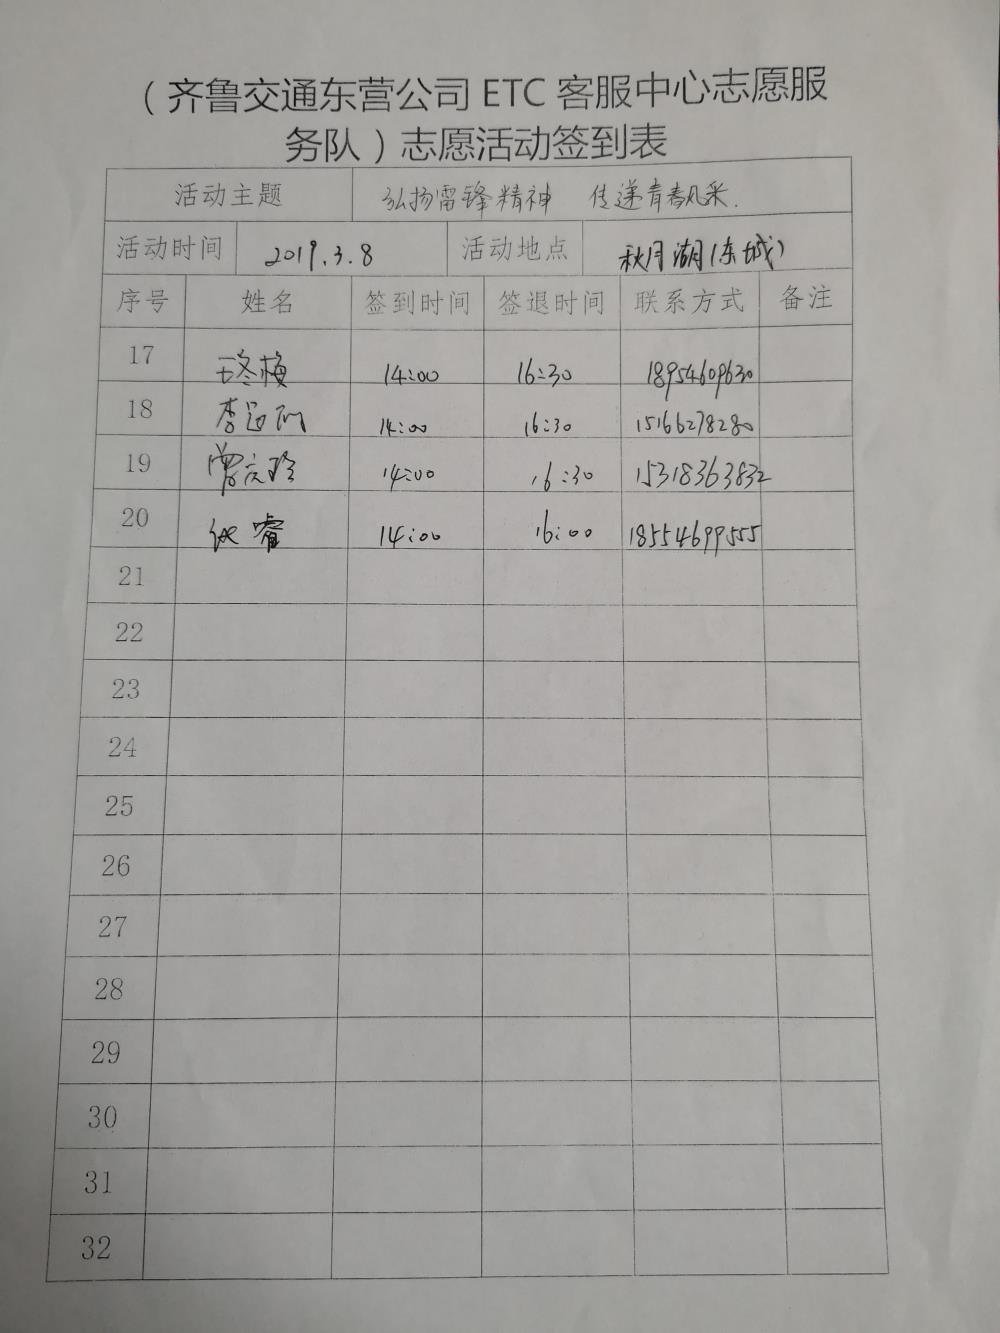 （齐鲁交通东营公司 ETC 客服中心志愿服
务队）志愿活动签到表
活动主题 弘扬雷锋精神 传递青春风采.
活动时间 2019.3.8 活动地点 秋月湖(东城)
序号 姓名 签到时间 签退时间 联系方式 备注
17 王冬梅 14:00 16:30 18954609630
18 李 14:00 16:30 15166278280
19 曾庆玲 14:00 16:30 15318363832
20 睿 14:00 16:00 18554699555
21
22
23
24
25
26
27
28
29
30
31
32